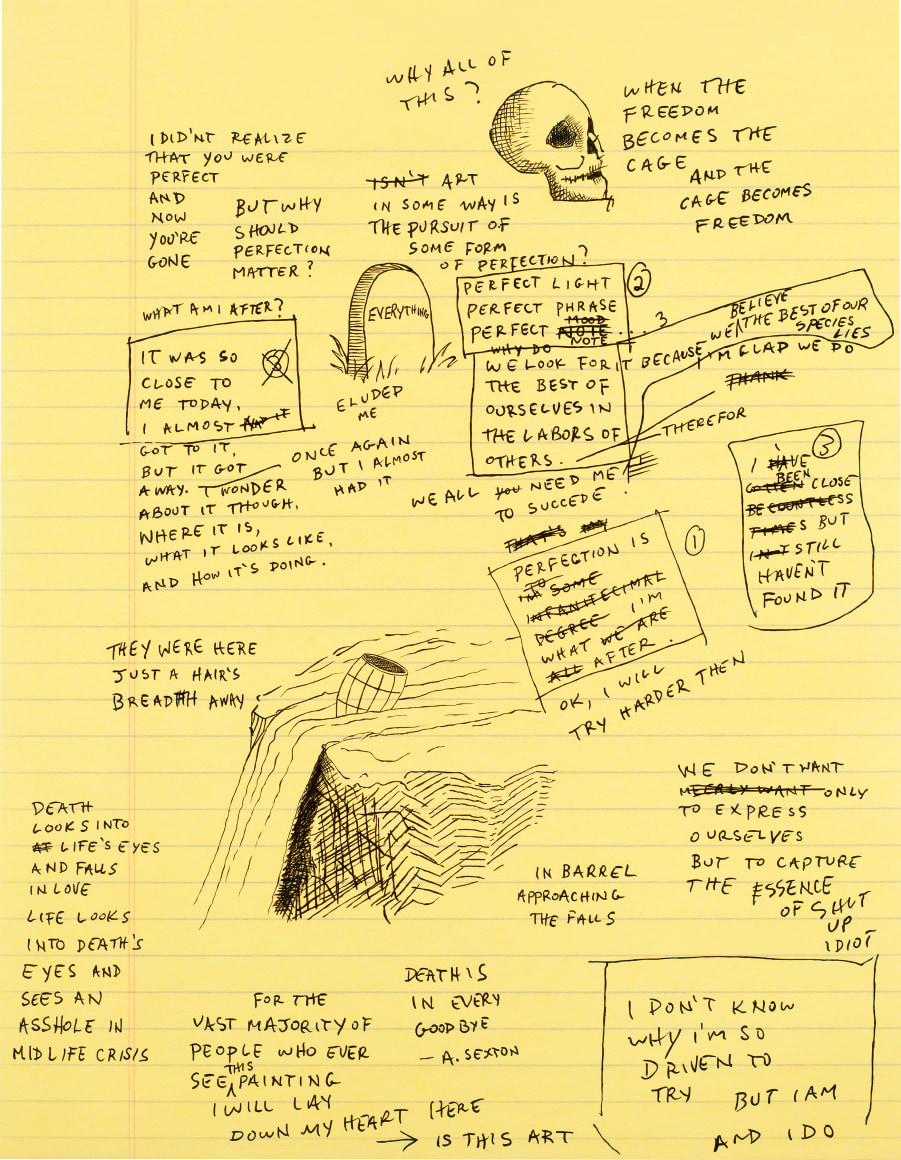 WHY ALL OF
THIS?
WHEN THE
FREEDOM
BECOMES THE
CAGE
AND THE
CAGE BECOMES
FREEDOM
I DID'NT REALIZE
THAT YOU WERE
PERFECT
AND
NOW
YOU'RE
GONE
BUT WHY
SHOULD
PERFECTION
MATTER?
ISN'T ART
IN SOME WAY IS
THE PURSUIT OF
SOME FORM
OF PERFECTION?
WHAT AM I AFTER?
IT WAS SO
CLOSE TO
ME TODAY,
I ALMOST HAD IT
GOT TO IT,
BUT IT GOT
AWAY. I WONDER
ABOUT IT THOUGH,
WHERE IT IS,
WHAT IT LOOKS LIKE,
AND HOW IT'S DOING.
ONCE AGAIN
BUT I ALMOST
HAD IT
EVERYTHING
ELUDED
ME
2
PERFECT LIGHT
PERFECT PHRASE
MOOD
PERFECT NOTE .... 3
NOTE
WHY DO
WE LOOK FOR IT BECAUSE WE THE BEST OF OUR
BELIEVE
SPECIES
LIES
THE BEST OF
OURSELVES IN
THE LABORS OF
OTHERS.
I'M GLAD WE DO
THANK
THEREFOR
WE ALL YOU NEED ME
TO SUCCEDE.
3
I HAVE
BEEN
GOTTEN CLOSE
BE COUNTLESS
TIMES BUT
STILL
HAVEN'T
FOUND IT
THAT'S MY
1
PERFECTION IS
TO
SOME
INFANITECIMAL
DEGREE I'M
WHAT WE ARE
ALL AFTER.
OK, I WILL
TRY HARDER THEN
THEY WERE HERE
JUST A HAIR'S
BREADTH AWAY
DEATH
LOOKS INTO
AT LIFE'S EYES
AND FALLS
IN LOVE
LIFE LOOKS
INTO DEATH'S
EYES AND
SEES AN
ASSHOLE IN
MIDLIFE CRISIS
IN BARREL
APPROACHING
THE FALLS
WE DON'T WANT
MEERLY WANT ONLY
TO EXPRESS
OURSELVES
BUT TO CAPTURE
THE ESSENCE
OF SHUT
UP
IDIOT
FOR THE
VAST MAJORITY OF
PEOPLE WHO EVER
THIS
SEE PAINTING
I WILL LAY
DOWN MY HEART HERE
IS THIS ART
DEATH IS
IN EVERY
GOODBYE
— A. SEXTON
I DON'T KNOW
WHY I'M SO
DRIVEN TO
TRY BUT I AM
AND I DO